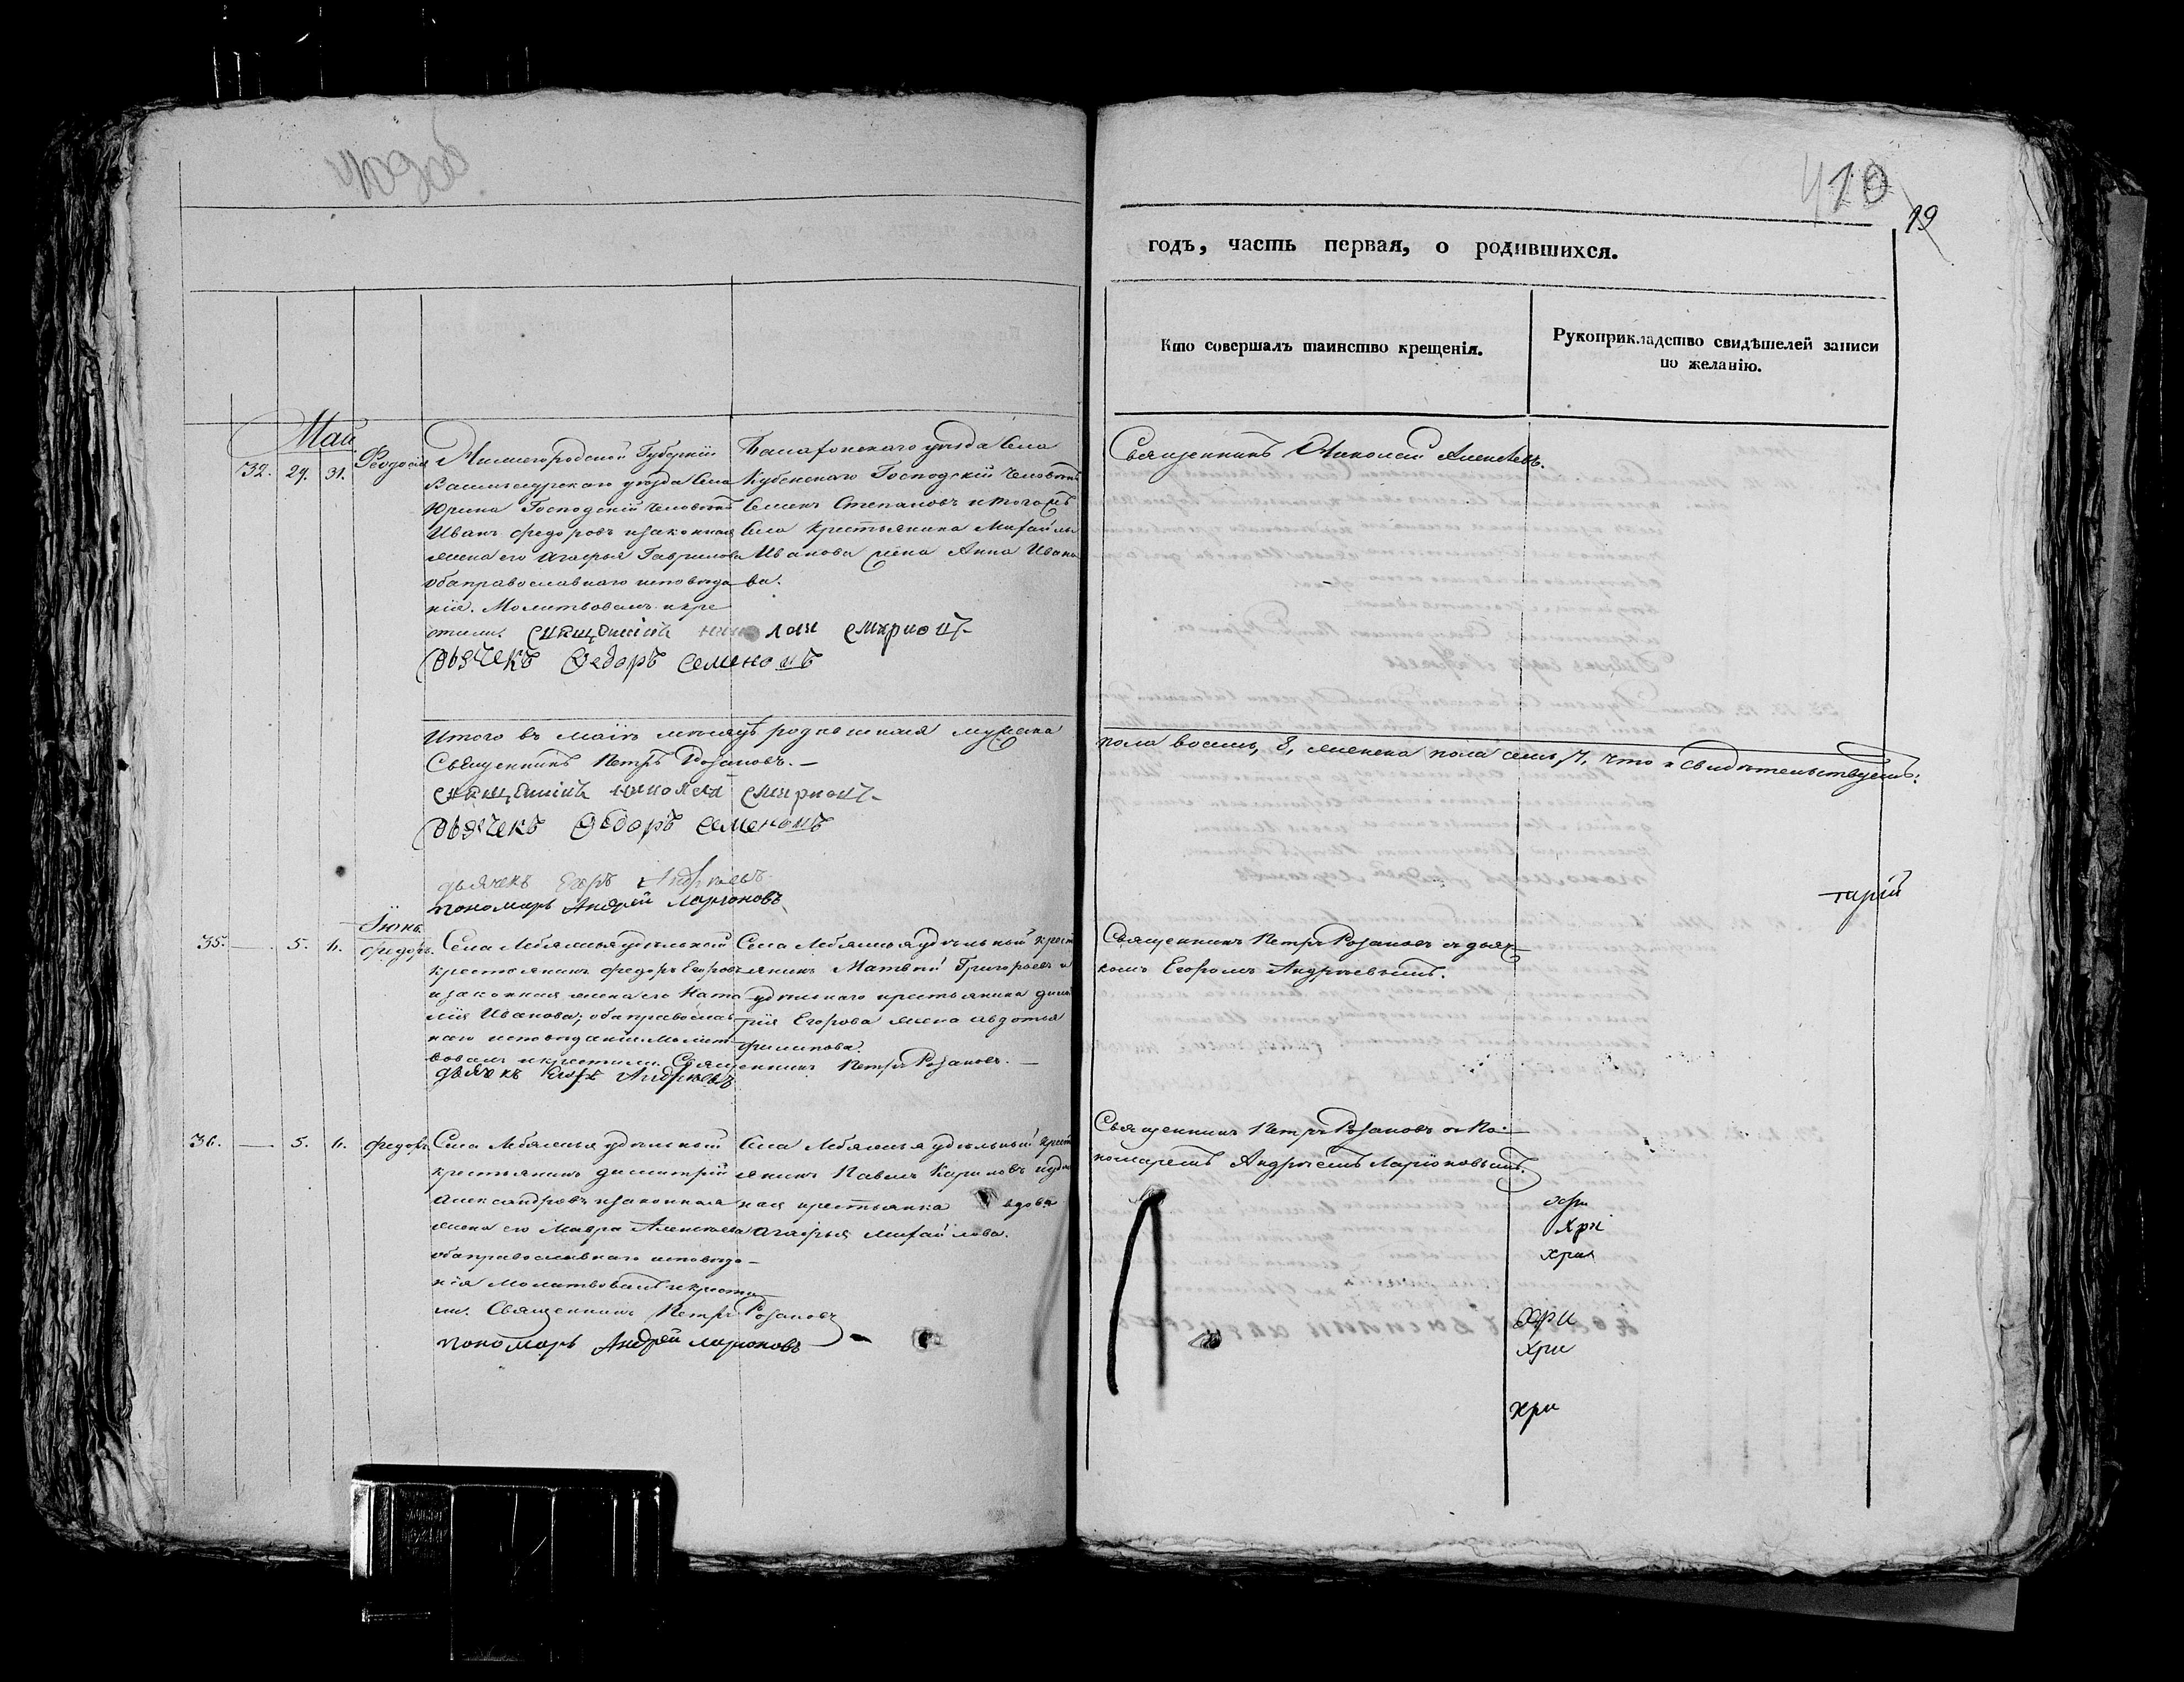 410
19
годъ, часть первая, о родившихся.
Кто совершалъ таинство крещенія.
Рукоприкладство свидѣтелей записи
по желанію.
Май
32. 29. 31. Феодосія
Нижегородской Губерніи
Васильсурскаго уѣзда Села
Юрина Господскій человѣкъ
Иванъ Федоровъ и законная
жена его Агафья Гаврилова
оба православнаго исповѣда
нія. Молитвовалъ и кре
стили.
уѣзда Села
Кубенскаго Господскій человѣкъ
Семенъ Степановъ и того жъ
Села крестьянина Михайлы
Иванова жена Анна Ивано
ва.
Священникъ Николай Алексѣевъ.
дьячекъ Федоръ Семеновъ
Итого въ маіѣ мѣсяцѣ родившихся мужеска
пола восемь, 8, женска пола семь, 7, что и свидѣтельствуемъ:
Священникъ Петръ Розановъ.
дьячекъ Федоръ Семеновъ
дьячекъ Егоръ Андреевъ
пономарь Андрей Ларіоновъ
Іюнь
35. — 5. 6. Федоръ
Села Лебяжья удѣльный
крестьянинъ Федоръ Егоровъ
и законная жена его Ната
лія Иванова; оба православ
наго исповѣданія Молит
вовалъ и крестили. Священникъ Петръ Розановъ. —
дьячекъ Егоръ Андреевъ
Села Лебяжья удѣльный крест
янинъ Матвѣй Григорьевъ и
удѣльнаго крестьянина Дмит
рія Егорова жена Авдотья
Филипова.
Священникъ Петръ Розановъ съ дьяч
комъ Егоромъ Андреевымъ.
36. — 5. 6. Федоръ
Села Лебяжья удѣльный
крестьянинъ Димитрій
Александровъ и законная
жена его Мавра Алексѣева
оба православнаго исповѣда
нія Молитвовалъ и крести
ли. Священникъ Петръ Розановъ
пономарь Андрей Ларіоновъ
Села Лебяжья удѣльный крест
янинъ Павелъ Кириловъ и удѣль
ная крестьянка вдова
Агафья Михайлова.
Священникъ Петръ Розановъ съ По
номаремъ Андреемъ Ларіоновымъ.
хри
хри
хри
хри
хри